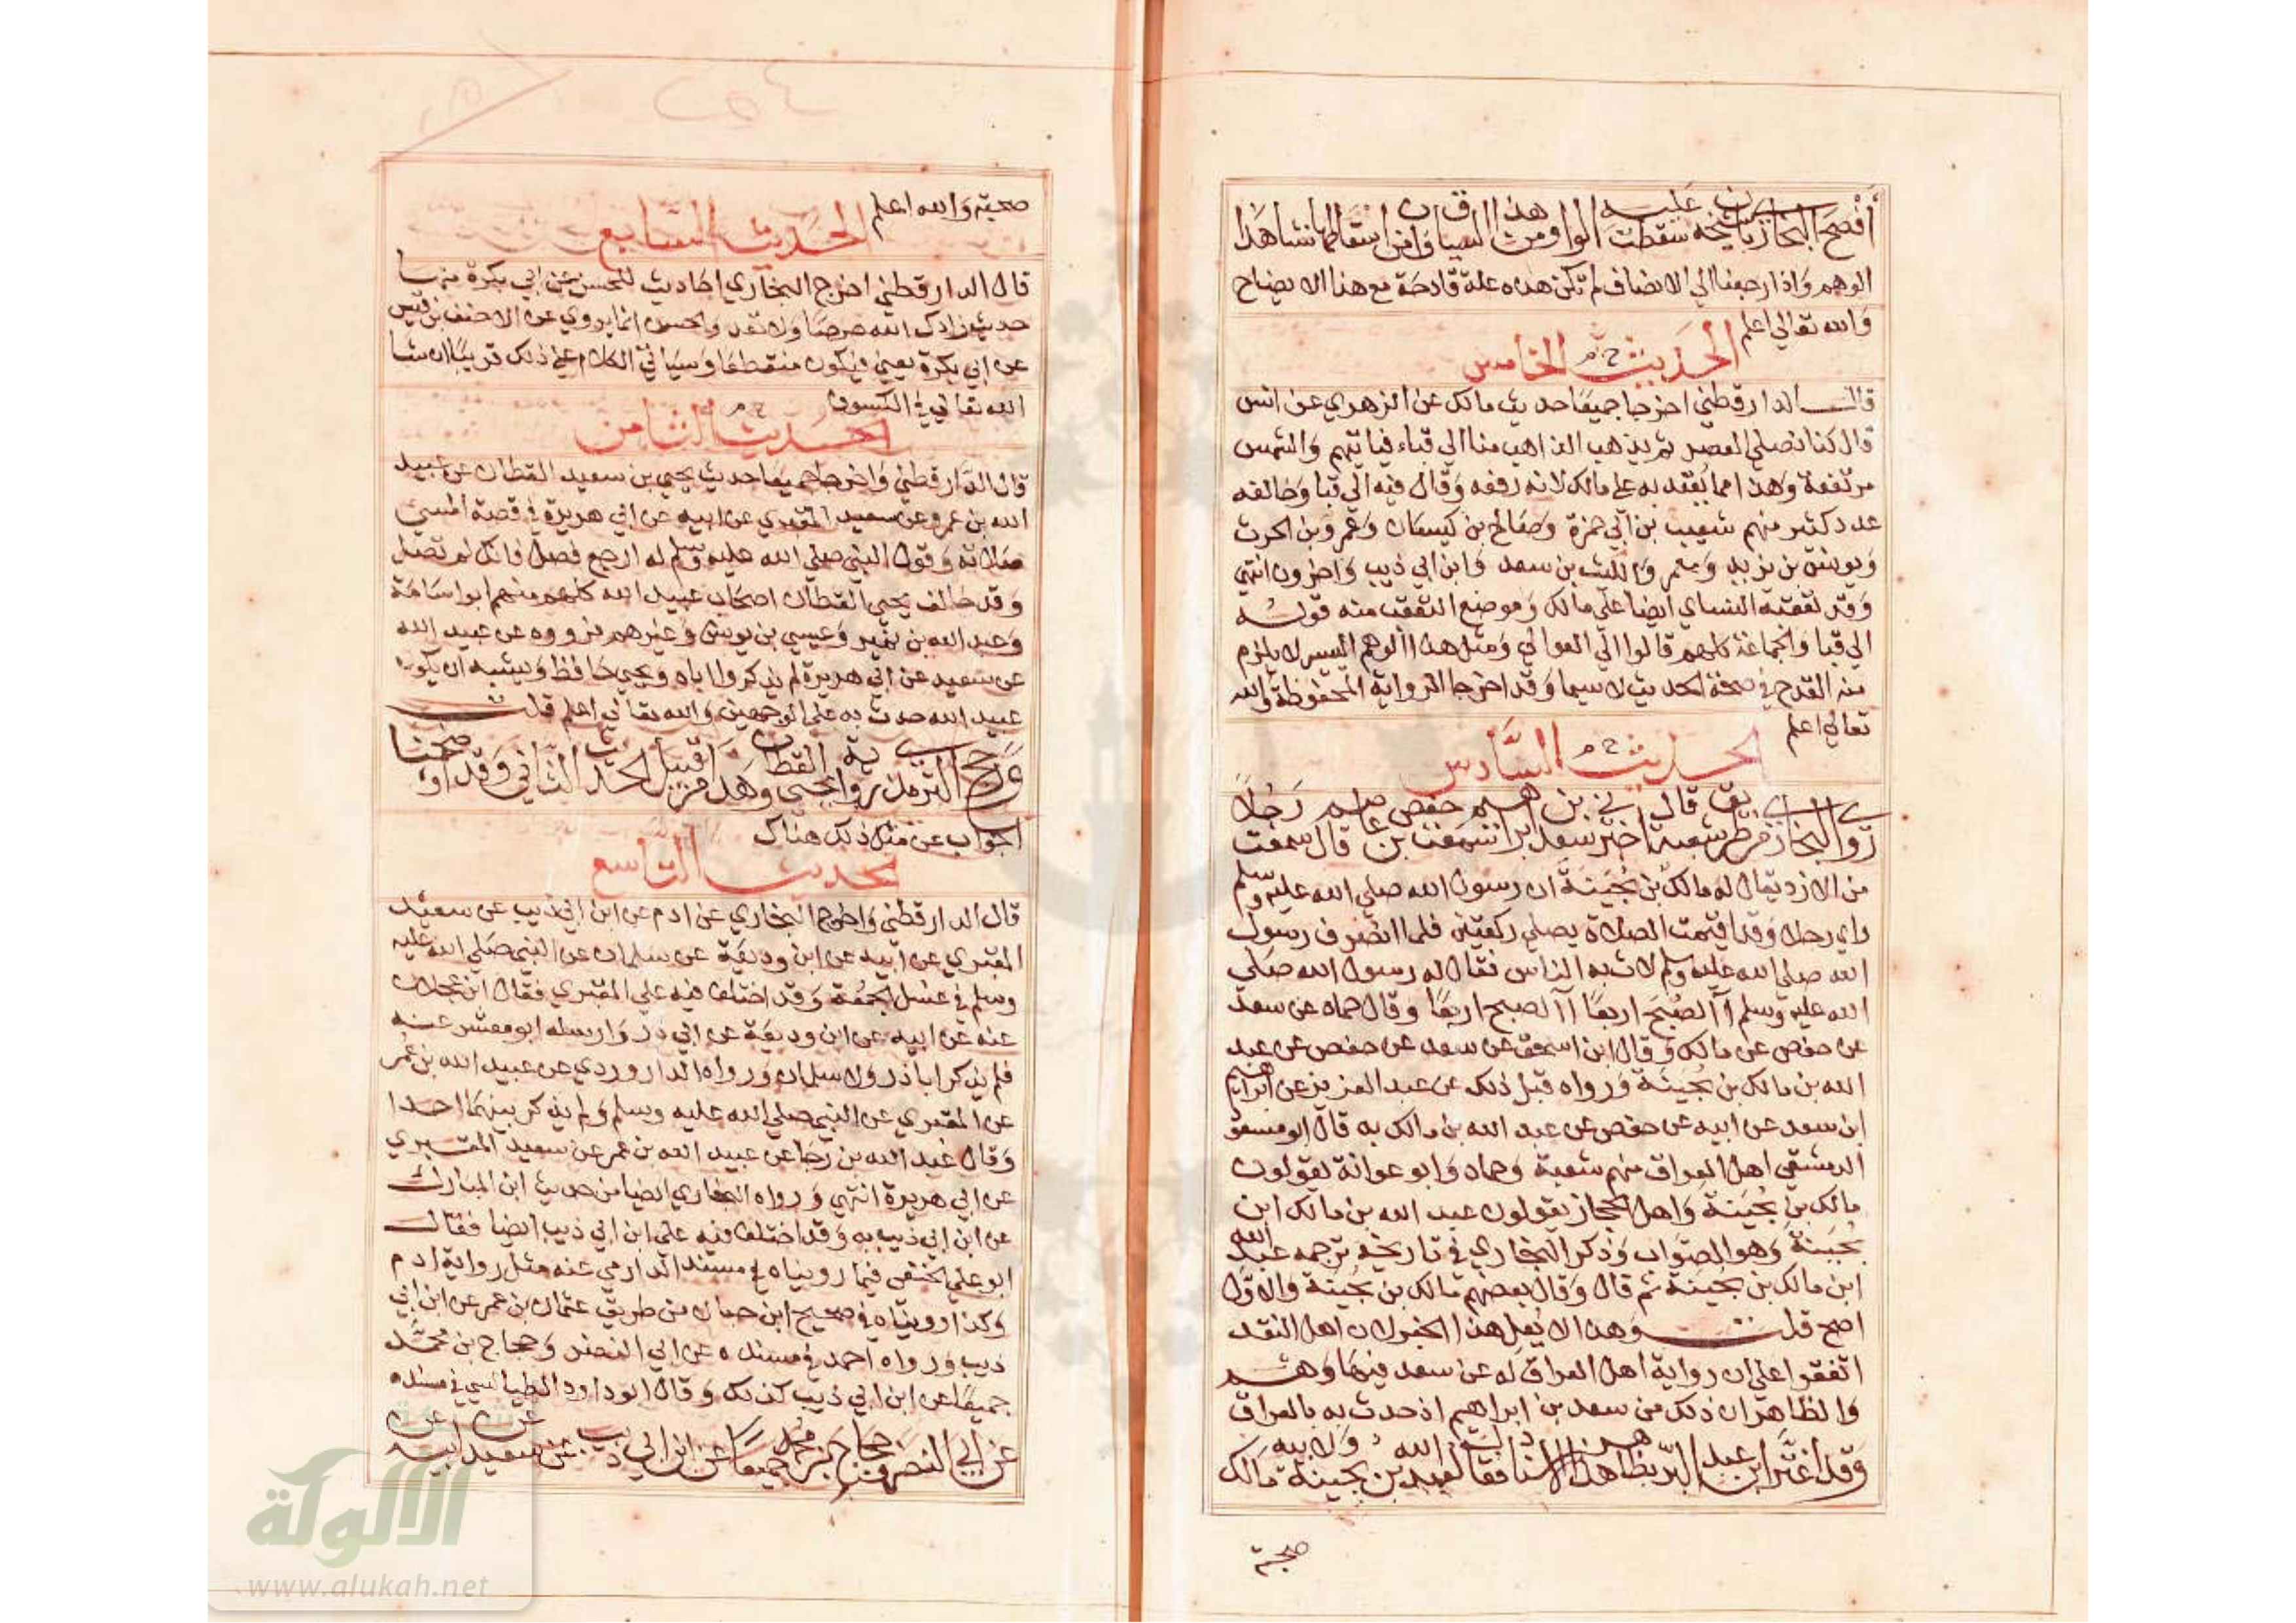 أفصح البخاري بأن شيخه عليه سقطت الواو من هذا السياق وان اسقاطها نشا هذا
الوهم وَاذا رجعنا الي الانصاف لم تكن هذه علة قادحة مع هذا الايضاح
وَالله تعالي اعلم
الحديث الخامس خ م
قال الدارقطني اخرجا جميعًا حديث مالك عن الزهري عن انس
قال كنا نصلي العصر ثم يذهب الذاهب منا الي قباء فياتيهم وَالشمس
مرتفعة وَهذا مما يُنتقد به علي مالك لانه رفعه وَقال فيه الي قبا وَخالفه
عدد كثير منهم شعيب بن ابي حمزة وَصَالح بن كيسان وَعَمرو بن الحرث
وَيونس بن يزيد وَمعمر وَالليث بن سعد وَابن ابي ذيب وَاخرون انتهي
وَقد تعقبه النساي ايضا علي مالك وَموضع التعقب منه قوله
الي قبا وَالجماعة كلهم قالوا الي العوالي وَمثل هذا الوهم اليسير لا يلزم
منه القدح في صحة الحديث لا سيما وَقد اخرجا الرواية المحفوظة وَالله
تعالي اعلم
الحديث السَّادس خ م
روي البخاري من طريق شعبة قال اخبرني سعد بن ابراهيم سمعت حفص بن عاصم قال سمعت رَجُلاً
من الازد يقال له مالك بن بُحَينَة ان رسول الله صلي الله عليه وسلم
راي رجلا وَقد اقيمت الصلاة يصلي ركعتين فلما انصَرف رسول
الله صلي الله عليه وسلم لاث به الناس فقال له رسول الله صَلي
الله عليه وسلم آالصُبحَ اربعًا آالصبح اربعًا وَقال حماد عن سعد
عن حفص عن مالك وَقال ابن اسحق عن سعد عن حفص عن عبد
الله بن مالك بن بُحَينَة وَرواه قبل ذلك عن عبد العزيز عن ابراهيم
ابن سعد عن ابيه عن حفص عن عبد الله بن مالك به قال ابو مسعود
الدمشقي اهل العراق منهم شعبة وَحماد وَابو عوانة يقولون
مالك بن بُحَينَة وَاهل الحجاز يقولون عبد الله بن مالك ابن
بُحَينَة وَهو الصَوَاب وَذكر البخاري في تاريخه ترجمة عبد الله
ابن مالك بن بحينة ثم قال وَقال بعضهم مالك بن بحينة وَالاوَّل
اصح قلت وَهذا لا يُعل هذا الخبر لان اهل النقد
اتفقوا علي ان رواية اهل العراق له عن سعد فيها وَهم
وَالظاهر ان ذلك من سعد بن ابراهيم اذ حدث به بالعراق
وَقد اغترَّ ابن عبد البرّ بظاهر هذا الاسناد فقال لعبد الله بن بحينة وَلابيه مَالك
صحبة
صحبة وَالله اعلم
الحَديث السَّابع
قال الدارقطني اخرج البخاري احاديث للحسن عن ابي بكرة منها
حديث زادك الله حرصًا وَلا تعد وَالحسن انما يروي عن الاحنف بن قيس
عن ابي بكرة يعني فيكون منقطعًا وَسيَاتي الكلام علي ذلك قريبًا ان شا
الله تعالي في الكسوف
الحَديث الثامن خ م
قال الدَّارقطني وَاخرجا جميعًا حديث يحيي بن سعيد القطان عن عبيد
الله بن عمر عن سعيد المقبري عن ابيه عن ابي هريرة في قصة المسي
صَلاته وَقول النبي صلي الله عليه وسلم له ارجع فصل فانك لم تصل
وَقد خالف يحيي القطان اصحَاب عبيد الله كلهم منهم ابو اسَامَة
وَعبد الله بن نمير وَعيسي بن يونس وَغيرهم فرووه عن عبيد الله
عن سعيد عن ابي هريرة لم يذكروا اباه وَيحيي حَافظ وَيشبه ان يكون
عبيد الله حدث به علي الوجهين وَالله تعالي اعلم قلت
وَرجح الترمذي رواية يحيي القطان وَهذا من قبيل الحديث الثَّاني وَقد اوضحنا
الجوَاب عن مثل ذلك هناك
الحديث التَّاسع
قال الدارقطني وَاخرج البخاري عن ادم عن ابن ابي ذيب عن سعيد
المقبري عن ابيه عن ابن وديعَة عن سلمان عن النبي صَلي الله عليه
وسلم في غسل الجمُعَة وَقد اختلف فيه علي المقبري فقال ابن عجلان
عنه عن ابيه عن ابن وديعَة عن ابي ذر وَارسله ابو معشر عنه
فلم يذكر ابا ذر وَلا سلمان وَرواه الدراوردي عن عبيد الله بن عُمر
عن المقبري عن النبي صلي الله عليه وسلم وَلم يذكر بينهمَا احدا
وَقال عَبد الله بن رجَا عن عبيد الله بن عمر عن سعيد المقبري
عن ابي هريرة انتهي وَرواه البخاري ايضا من حديث ابن المبَارك
عن ابن ابي ذيب به وَقد اختلف فيه علي ابن ابي ذيب ايضا فقال
ابو علي الحنفي فيما رويناه في مسند الدارمي عنه مثل رواية ادم
وَكذا رويناه في صحيح ابن حبان من طريق عثمان بن عمر عن ابن ابي
ذيب وَرواه احمد في مسنده عن ابي النضر وَحجاج بن محمَّد
جميعًا عن ابن ابي ذيب كذلك وَقال ابو داود الطيالسي في مسنده
عن ابي النضر وحجاج بن محمد جميعًا عن ابن ابي ذيب عن سعيد عن ابيه عن
شبكة
الألوكة
www.alukah.net